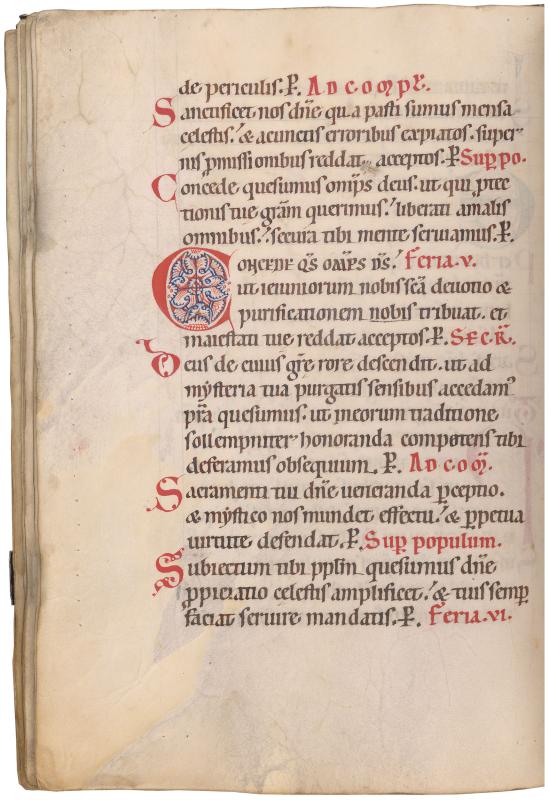 de periculis. P. AD COMPL̄.
Sanctificet nos dn̄e qua pasti sumus mensa
celestis. & acunctis erroribus expiatos. super-
nis ꝓmissionibus reddat acceptos. P. Sup̱ po.
Concede quesumus omp̄s deus. ut qui ꝓtec
tionis tue grām querimus. liberati amalis
omnibus. secura tibi mente seruiamus. P.
CONCEDE QS̄ OMP̄S DS̄. Feria. v.
ut ieiuniorum nobis sc̄a deuotio &
purificationem nobis tribuat. et
maiestati tue reddat acceptos. P. SECR̄.
Deus de cuius grē rore descendit. ut ad
mẏsteria tua purgatis sensibus accedam᷒
pr̄a quesumus. ut in eorum traditione
sollempniter honoranda competens tibi
deferamus obsequium. P. AD COM̄.
Sacramenti tui dn̄e ueneranda ꝑceptio.
& mẏstico nos mundet effectu. & ꝑpetua
uirtute defendat. P. Sup̱ populum.
Subiectum tibi pplm̄ quesumus dn̄e
ꝓpiciatio celestis amplificet. & tuis semꝑ
faciat seruire mandatis. P. Feria. vi.